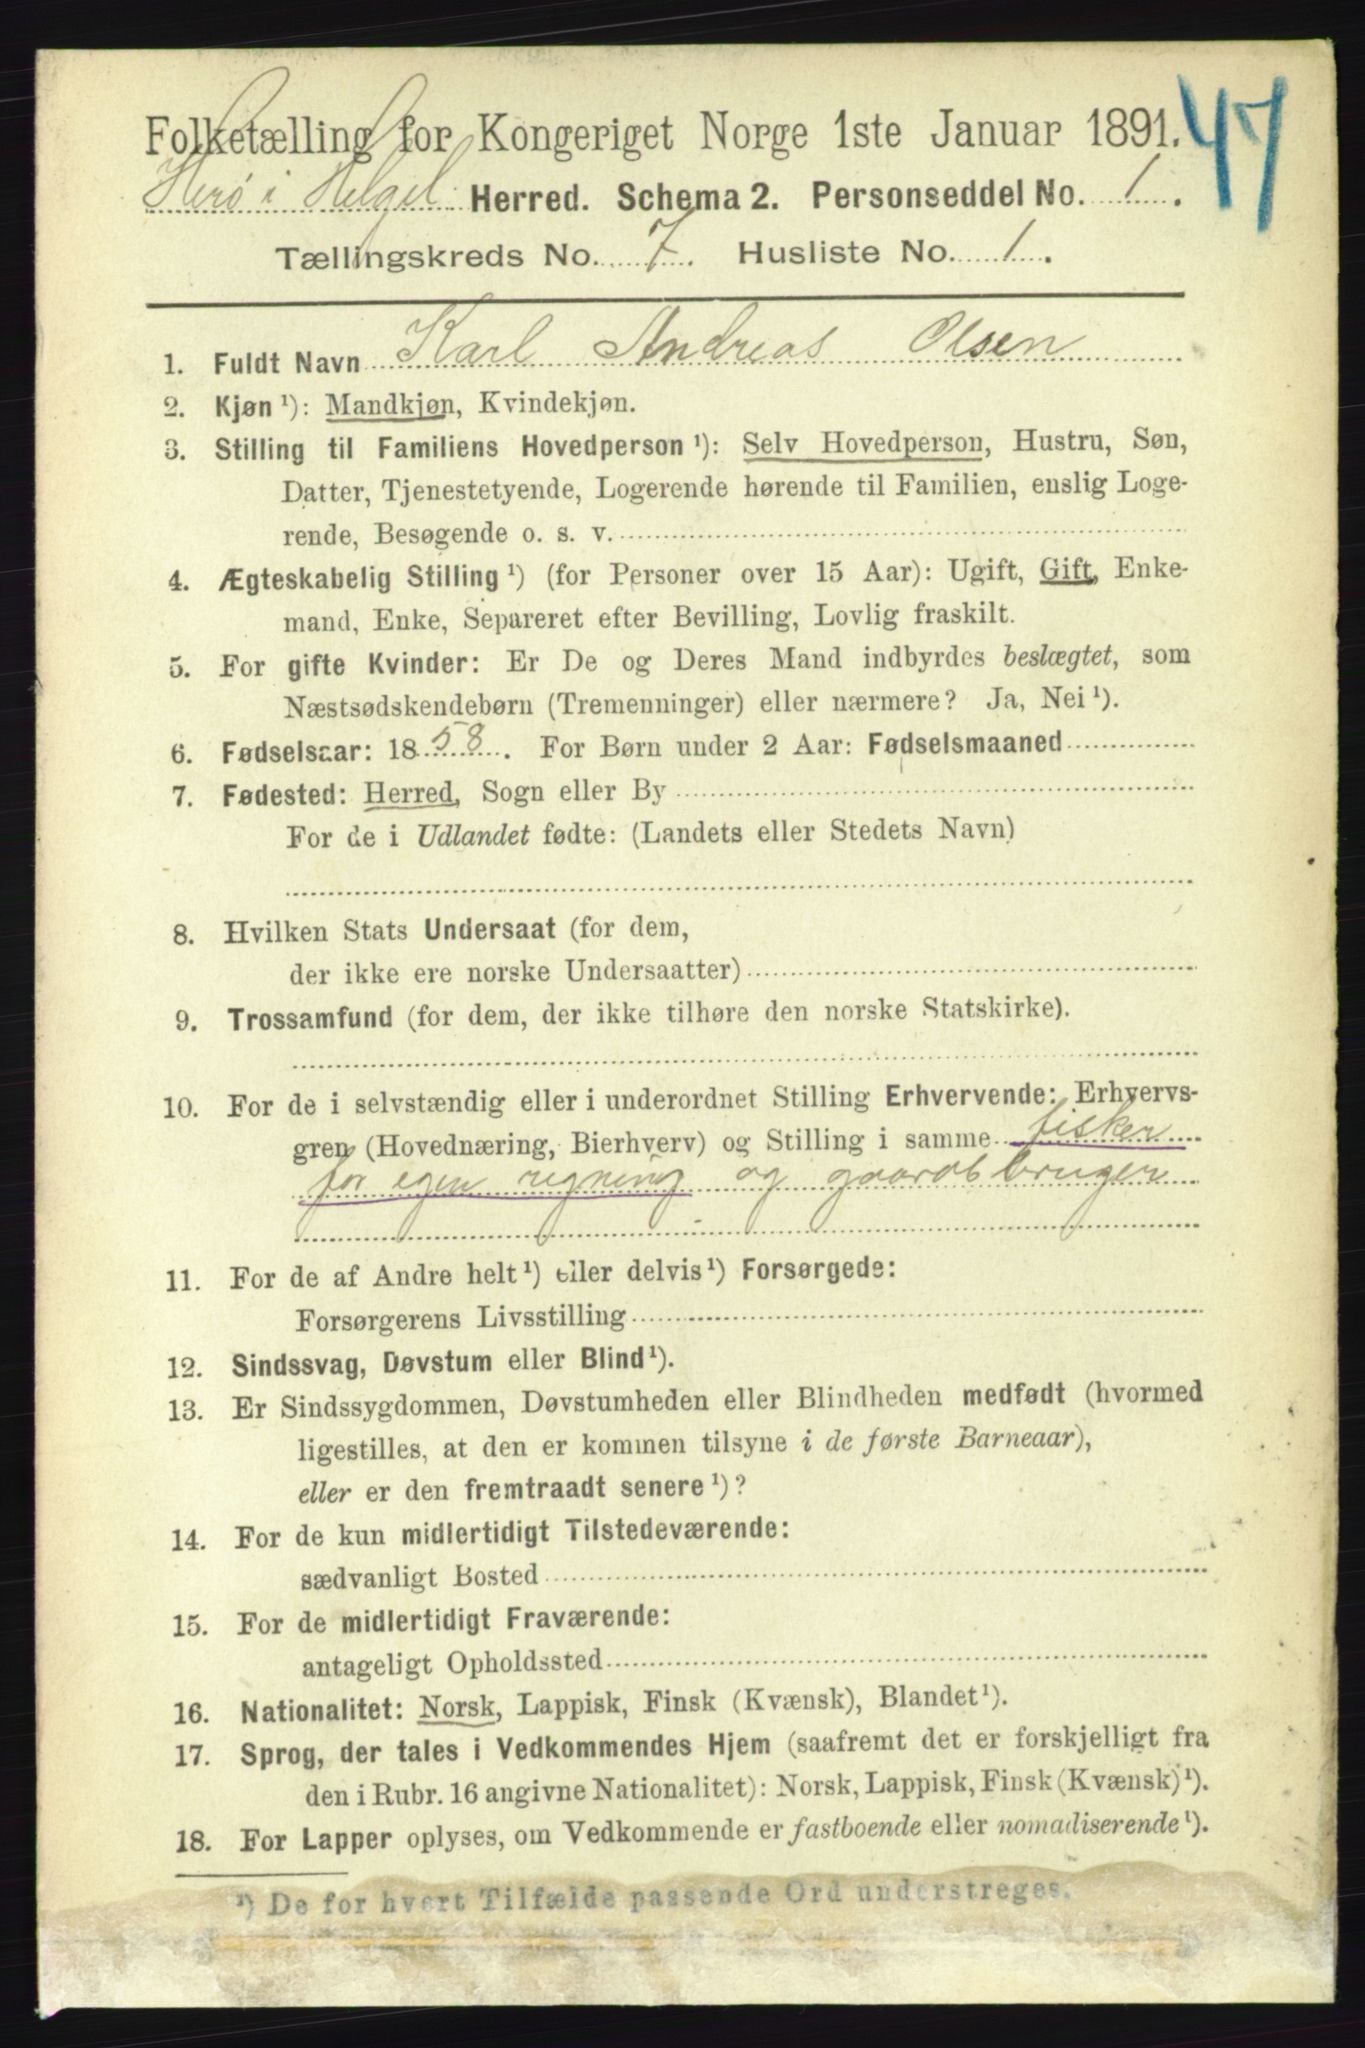 Folketælling for Kongeriget Norge 1ste Januar 1891.
47
Herø i Helgel. Herred. Schema 2. Personseddel No. 1.
Tællingskreds No. 7. Husliste No. 1.
1. Fuldt Navn Karl Andreas Olsen
2. Kjøn ¹): Mandkjøn, Kvindekjøn.
3. Stilling til Familiens Hovedperson ¹): Selv Hovedperson, Hustru, Søn,
Datter, Tjenestetyende, Logerende hørende til Familien, enslig Loge-
rende, Besøgende o. s. v.
4. Ægteskabelig Stilling ¹) (for Personer over 15 Aar): Ugift, Gift, Enke-
mand, Enke, Separeret efter Bevilling, Lovlig fraskilt.
5. For gifte Kvinder: Er De og Deres Mand indbyrdes beslægtet, som
Næstsødskendebørn (Tremenninger) eller nærmere? Ja, Nei ¹).
6. Fødselsaar: 1858. For Børn under 2 Aar: Fødselsmaaned
7. Fødested: Herred, Sogn eller By
For de i Udlandet fødte: (Landets eller Stedets Navn)
8. Hvilken Stats Undersaat (for dem,
der ikke ere norske Undersaatter)
9. Trossamfund (for dem, der ikke tilhøre den norske Statskirke).
10. For de i selvstændig eller i underordnet Stilling Erhvervende: Erhvervs-
gren (Hovednæring, Bierhverv) og Stilling i samme fisker
for egen regning og gaardsbruger
11. For de af Andre helt ¹) eller delvis ¹) Forsørgede:
Forsørgerens Livsstilling
12. Sindssvag, Døvstum eller Blind ¹).
13. Er Sindssygdommen, Døvstumheden eller Blindheden medfødt (hvormed
ligestilles, at den er kommen tilsyne i de første Barneaar),
eller er den fremtraadt senere ¹)?
14. For de kun midlertidigt Tilstedeværende:
sædvanligt Bosted
15. For de midlertidigt Fraværende:
antageligt Opholdssted
16. Nationalitet: Norsk, Lappisk, Finsk (Kvænsk), Blandet ¹).
17. Sprog, der tales i Vedkommendes Hjem (saafremt det er forskjelligt fra
den i Rubr. 16 angivne Nationalitet): Norsk, Lappisk, Finsk (Kvænsk) ¹).
18. For Lapper oplyses, om Vedkommende er fastboende eller nomadiserende ¹).
¹) De for hvert Tilfælde passende Ord understreges.